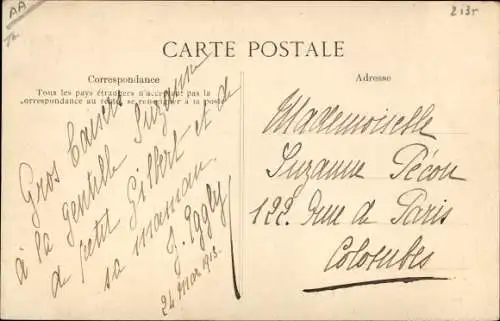 AA
2i35
CARTE POSTALE
Correspondance
Tous les pays étrangers n'acceptant pas la
correspondance au recto, se renseigner à la poste
Gros baisers
à la gentille Suzanne
de petit Gilbert et de
sa maman
J. Eggly
24 Mar 1913.
Adresse
Mademoiselle
Suzanne Pécou
122 Rue de Paris
Colombes